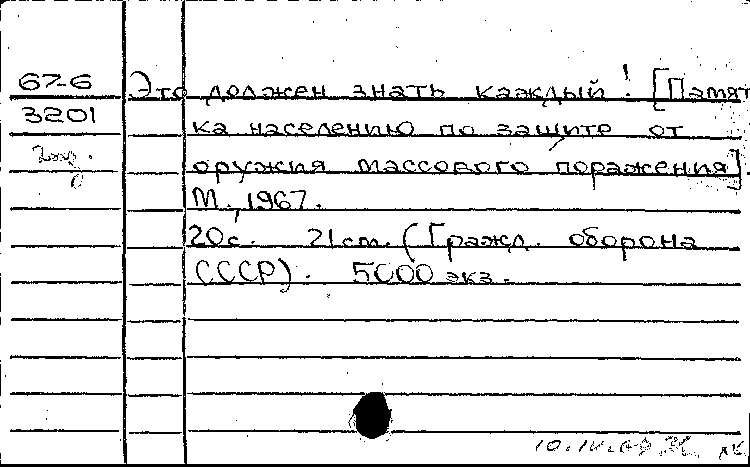 67-6 Это должен знать каждый! [Памят
3201 ка населению по защите от
2экз. оружия массового поражения].
М., 1967.
20с. 21см. (Гражд. оборона
СССР). 5000 экз.
10.IV.69